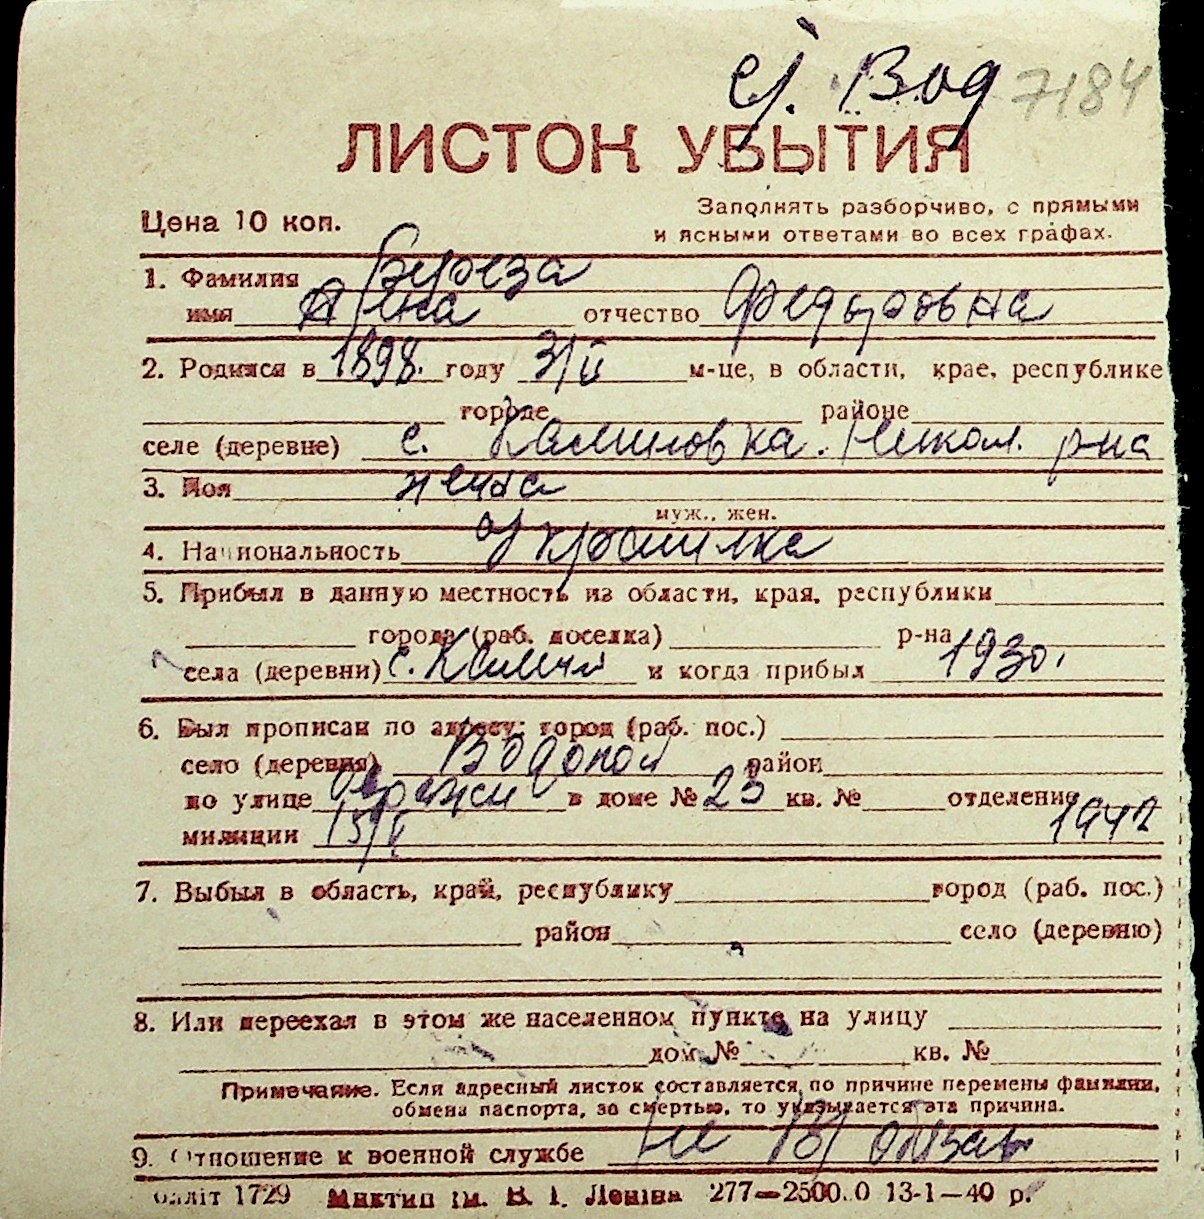 7184
ЛИСТОК УБЫТИЯ
Цена 10 коп.
Заполнять разборчиво, с прямыми
и ясными ответами во всех графах.
1. Фамилия Береза
имя отчество Федоровна
2. Родился в 1898. году 3/II м-це, в области, крае, республике
городе районе
селе (деревне) с. Калиновка. Никол. р-на
3. Пол жена
муж., жен.
4. Национальность Украинка
5. Прибыл в данную местность из области, края, республики
города (раб. поселка) р-на
села (деревни) с. и когда прибыл 1930.
6. Был прописан по адресу: город (раб. пос.)
село (деревня) Водопой район
по улице в доме № 23 кв. № отделение
милиции 1942
7. Выбыл в область, край, республику город (раб. пос.)
район село (деревню)
8. Или переехал в этом же населенном пункте на улицу
дом № кв. №
Примечание. Если адресный листок составляется по причине перемены фамилии,
обмена паспорта, за смертью, то указывается эта причина.
9. Отношение к военной службе не В/обязан
1729 ім. В. І. Леніна 277—2500.0 13-1—40 р.